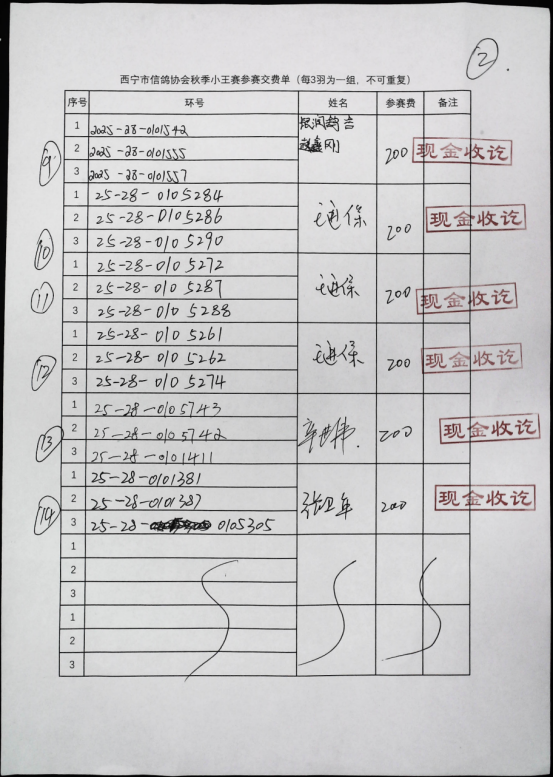 2
西宁市信鸽协会秋季小王赛参赛交费单（每3羽为一组，不可重复）
序号 环号 姓名 参赛费 备注
9
1 2025-28-0101542
2 2025-28-0101555 刚 200 现金收讫
3 2025-28-0101557
10
1 25-28-0105284
2 25-28-0105286 保 200 现金收讫
3 25-28-0105290
11
1 25-28-0105272
2 25-28-0105287 保 200 现金收讫
3 25-28-0105288
12
1 25-28-0105261
2 25-28-0105262 保 200 现金收讫
3 25-28-0105274
13
1 25-28-0105743
2 25-28-0105742 辛世伟 200 现金收讫
3 25-28-0101411
14
1 25-28-0101381
2 25-28-0101387 张卫年 200 现金收讫
3 25-28-0105305
1
2
3
1
2
3